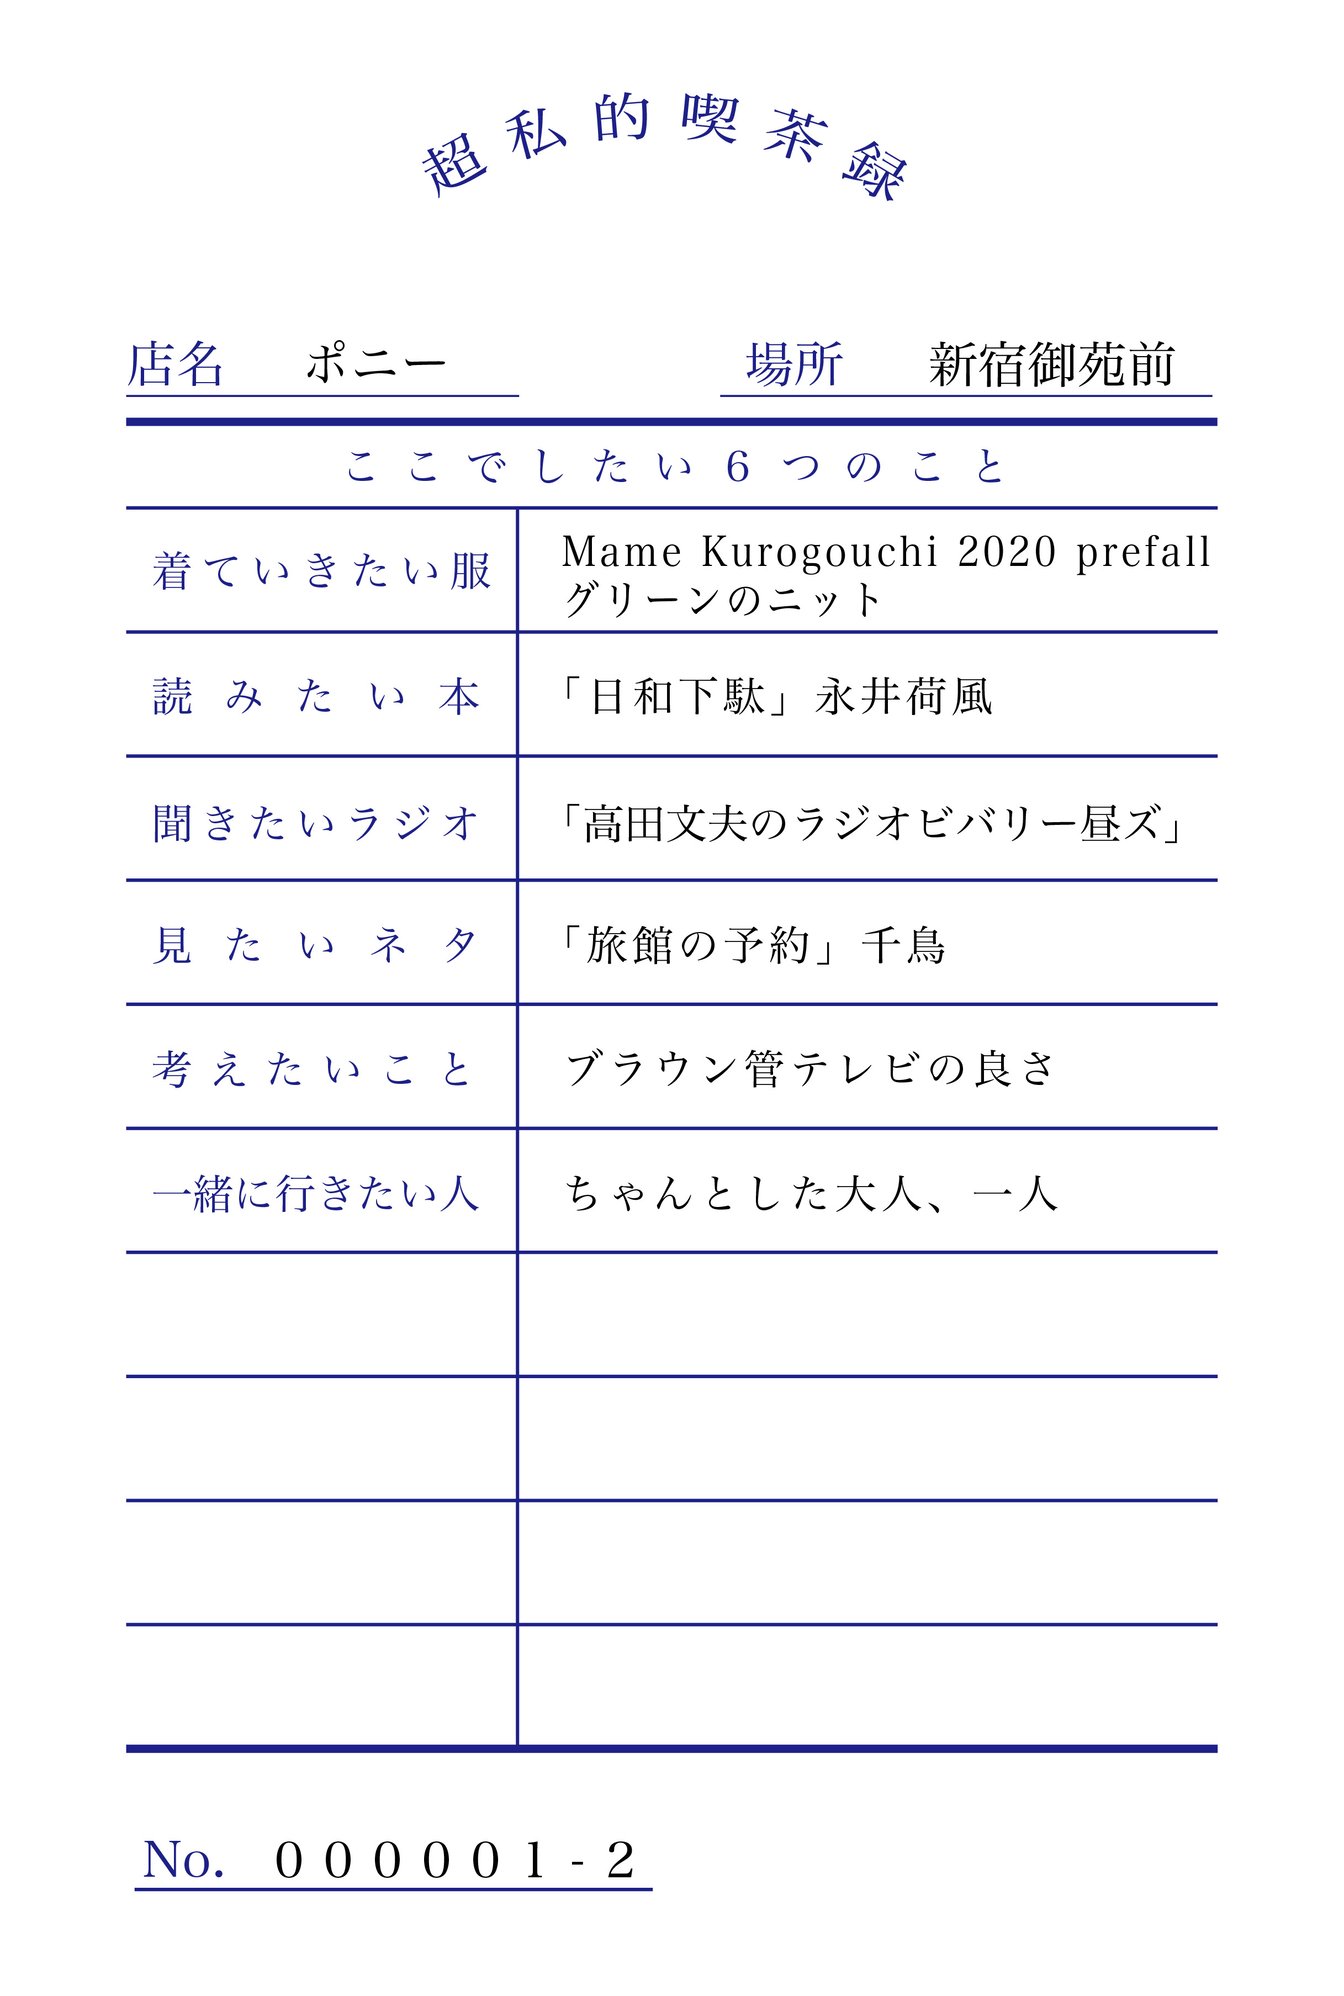 超私的喫茶録
店名 ポニー 場所 新宿御苑前
ここでしたい6つのこと
着ていきたい服 Mame Kurogouchi 2020 prefall
グリーンのニット
読みたい本 「日和下駄」永井荷風
聞きたいラジオ 「高田文夫のラジオビバリー昼ズ」
見たいネタ 「旅館の予約」千鳥
考えたいこと ブラウン管テレビの良さ
一緒に行きたい人 ちゃんとした大人、一人
No. 000001-2